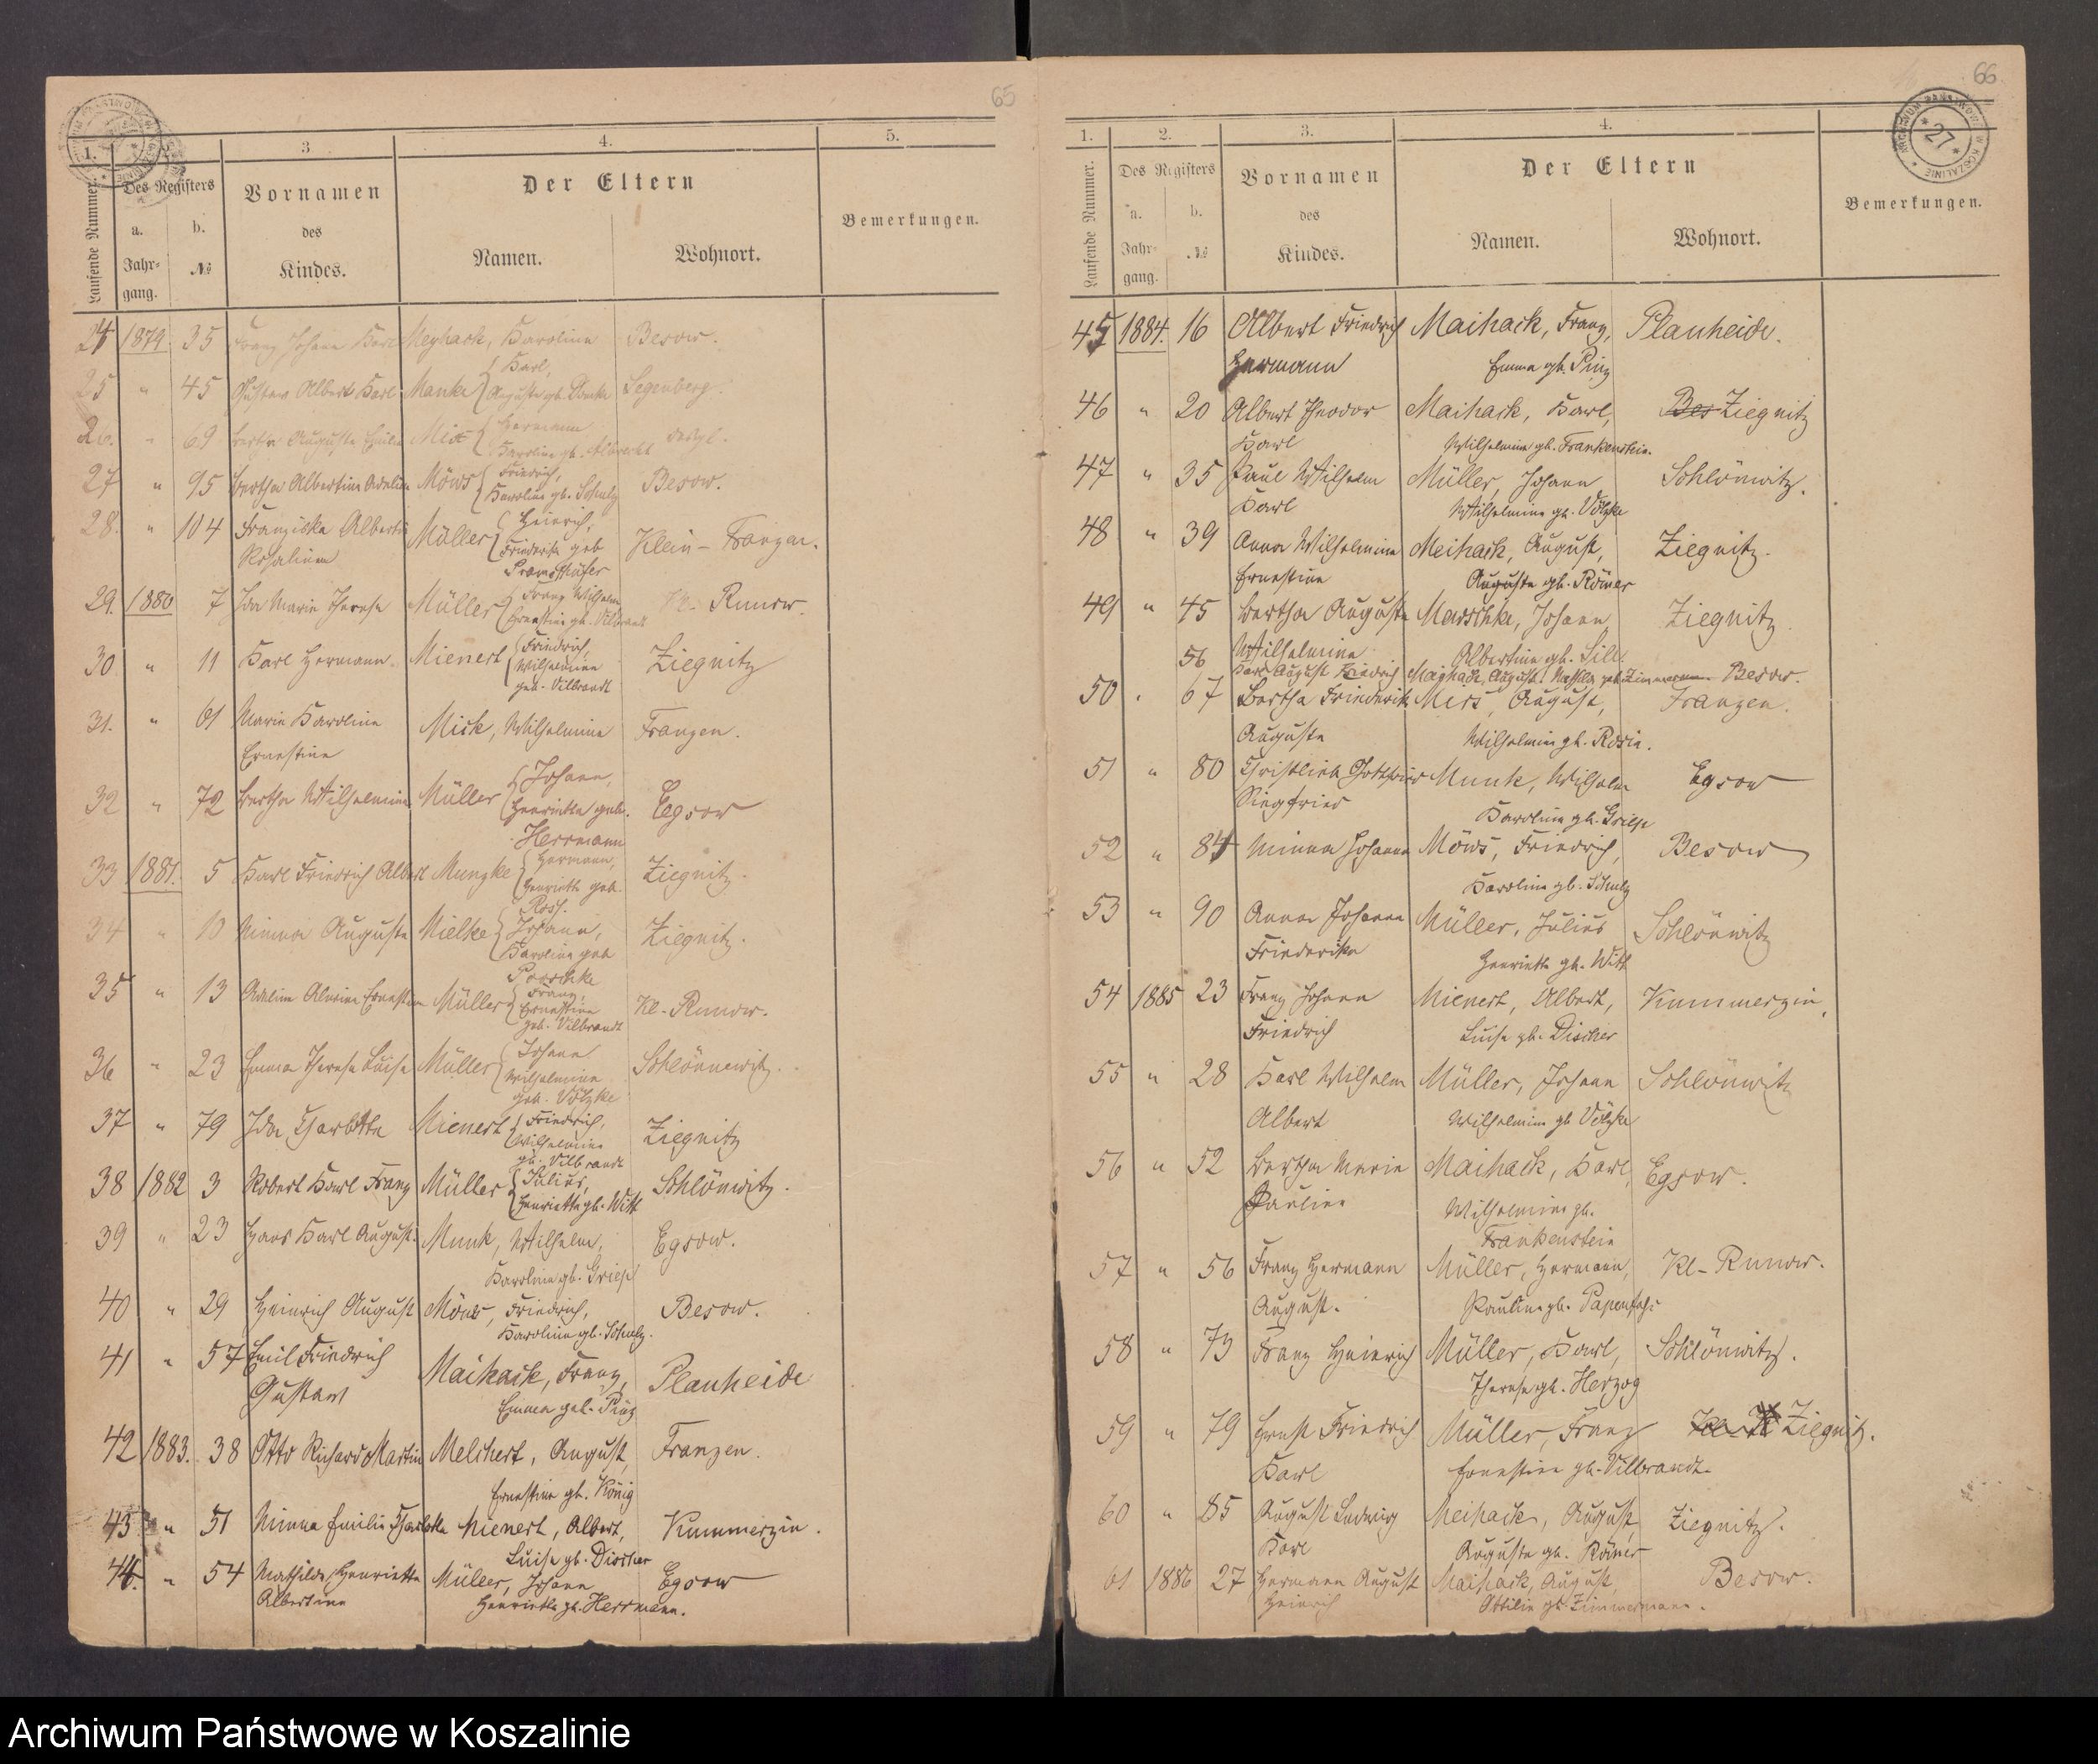 65
1.
2.
3
4.
5.
Laufende Nummer.
Des Registers
Vornamen
Der Eltern
a.
b.
des
Bemerkungen.
Jahr-
№
Kindes.
Namen.
Wohnort.
gang.
24 1879 35 Franz Johann Karl Meyhack, Karoline Besow.
25 " 45 Gustav Albert Karl Manke Karl,
Auguste gb. Segenberg.
26. " 69 Bertha Auguste Mix Hermann
Karoline gb. Albrecht desgl.
27 " 95 Bertha Albertine Adeline Möws Friedrich,
Karoline gb. Schulz Besow.
28. " 104 Franziska Albertine Müller Heinrich,
Rosaline Friederike geb Klein-Franzen.
29. 1880 7 Ida Marie Therese Müller Franz Wilhelm
Ernestine gb. Vilbrandt Kl. Runow.
30 " 11 Karl Hermann Mienert Friedrich,
Wilhelmine Ziegnitz
geb. Vilbrandt
31. " 61 Marie Karoline Mick, Wilhelmine Franzen.
Ernestine
32 " 72 Bertha Wilhelmine Müller Johann,
Henriette geb. Egsow
Herrmann
33 1881. 5 Karl Friedrich Albert Munzke Hermann,
Henriette geb. Ziegnitz.
Ross.
34 " 10 Minna Auguste Mielke Johann,
Karoline geb Ziegnitz.
35 " 13 Adeline Alwine Ernestine Müller Franz,
Ernestine Kl-Runow.
geb. Vilbrandt
36 " 23 Emma Therese Luise Müller Johann
Wilhelmine Schlönnewitz.
geb. Völzke
37 " 79 Ida Charlotte Mienert Friedrich,
Wilhelmine Ziegnitz
gb. Vilbrandt
38 1882 3 Robert Karl Franz Müller Julius,
Henriette gb. Witt Schlönwitz.
39 " 23 Hans Karl August. Munk, Wilhelm, Egsow.
Karoline gb. Griep
40 " 29 Heinrich August Möws, Friedrich, Besow.
Karoline gb. Schulz.
41 " 57 Emil Friedrich Maihack, Franz, Planheide
Gustav Emma geb. Pinz
42 1883. 38 Otto Richard Martin Melchert, August, Franzen.
Ernestine gb. König
43 " 51 Minna Emilie Charlotte Mienert, Albert, Kummerzin.
Luise gb. Discher
44. " 54 Mathilde Henriette Müller, Johann Egsow
Albertine Henriette gb. Herrmann.
66
1.
2.
3.
4.
Laufende Nummer.
Des Registers
Vornamen
Der Eltern
a.
b.
des
Bemerkungen.
Jahr-
№
Kindes.
Namen.
Wohnort.
gang.
ARCHIWUM PAŃSTWOWE W KOSZALINIE
27
45 1884. 16 Albert Friedrich Maihack, Franz, Planheide.
Hermann Emma gb. Pinz
46 " 20 Albert Theodor Maihack, Karl, Bes Ziegnitz
Karl Wilhelmine gb. Frankenstein.
47 " 35 Paul Wilhelm Müller, Johann Schlönwitz.
Karl Wilhelmine gb. Völzke
48 " 39 Anna Wilhelmine Meihack, August, Ziegnitz.
Ernestine Auguste gb. Römer
49 " 45 Bertha Auguste Marschke, Johann Ziegnitz
Wilhelmine Albertine gb. Sill.
56 Karl August Friedrich Maihack, August, geb. Zimmermann Besow.
50 " 67 Bertha Friederike Mirs, August, Franzen.
Auguste Wilhelmine gb. Rosin.
51 " 80 Christlieb Gottfried Munk, Wilhelm Egsow
Siegfried Karoline gb. Griep
52 " 84 Minna Johanna Möws, Friedrich, Besow
Karoline gb. Schulz
53 " 90 Anna Johanna Müller, Julius Schlönwitz
Friederike Henriette gb. Witt
54 1885 23 Franz Johann Mienert, Albert, Kummerzin,
Friedrich Luise gb. Discher
55 " 28 Karl Wilhelm Müller, Johann Schlönwitz
Albert Wilhelmine gb Völzke
56 " 52 Bertha Marie Maihack, Karl, Egsow.
Pauline Wilhelmine gb.
Frankenstein
57 " 56 Franz Hermann Müller, Hermann, Kl-Runow.
August. Pauline gb. Papenfuhs
58 " 73 Franz Heinrich Müller, Karl, Schlönwitz.
Therese gb. Herzog
59 " 79 Ernst Friedrich Müller, Franz Ziegnitz.
Karl Ernestine gb. Vilbrandt.
60 " 85 August Ludwig Meihack, August, Ziegnitz.
Karl Auguste gb. Römer
61 1886 27 Hermann August Maihack, August, Besow.
Heinrich Ottilie gb. Zimmermann.
Archiwum Państwowe w Koszalinie